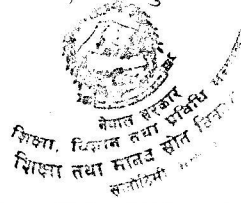 नेपाल सरकार
शिक्षा, विज्ञान तथा प्रविधि
शिक्षा तथा मानव स्रोत
सानोठिमी